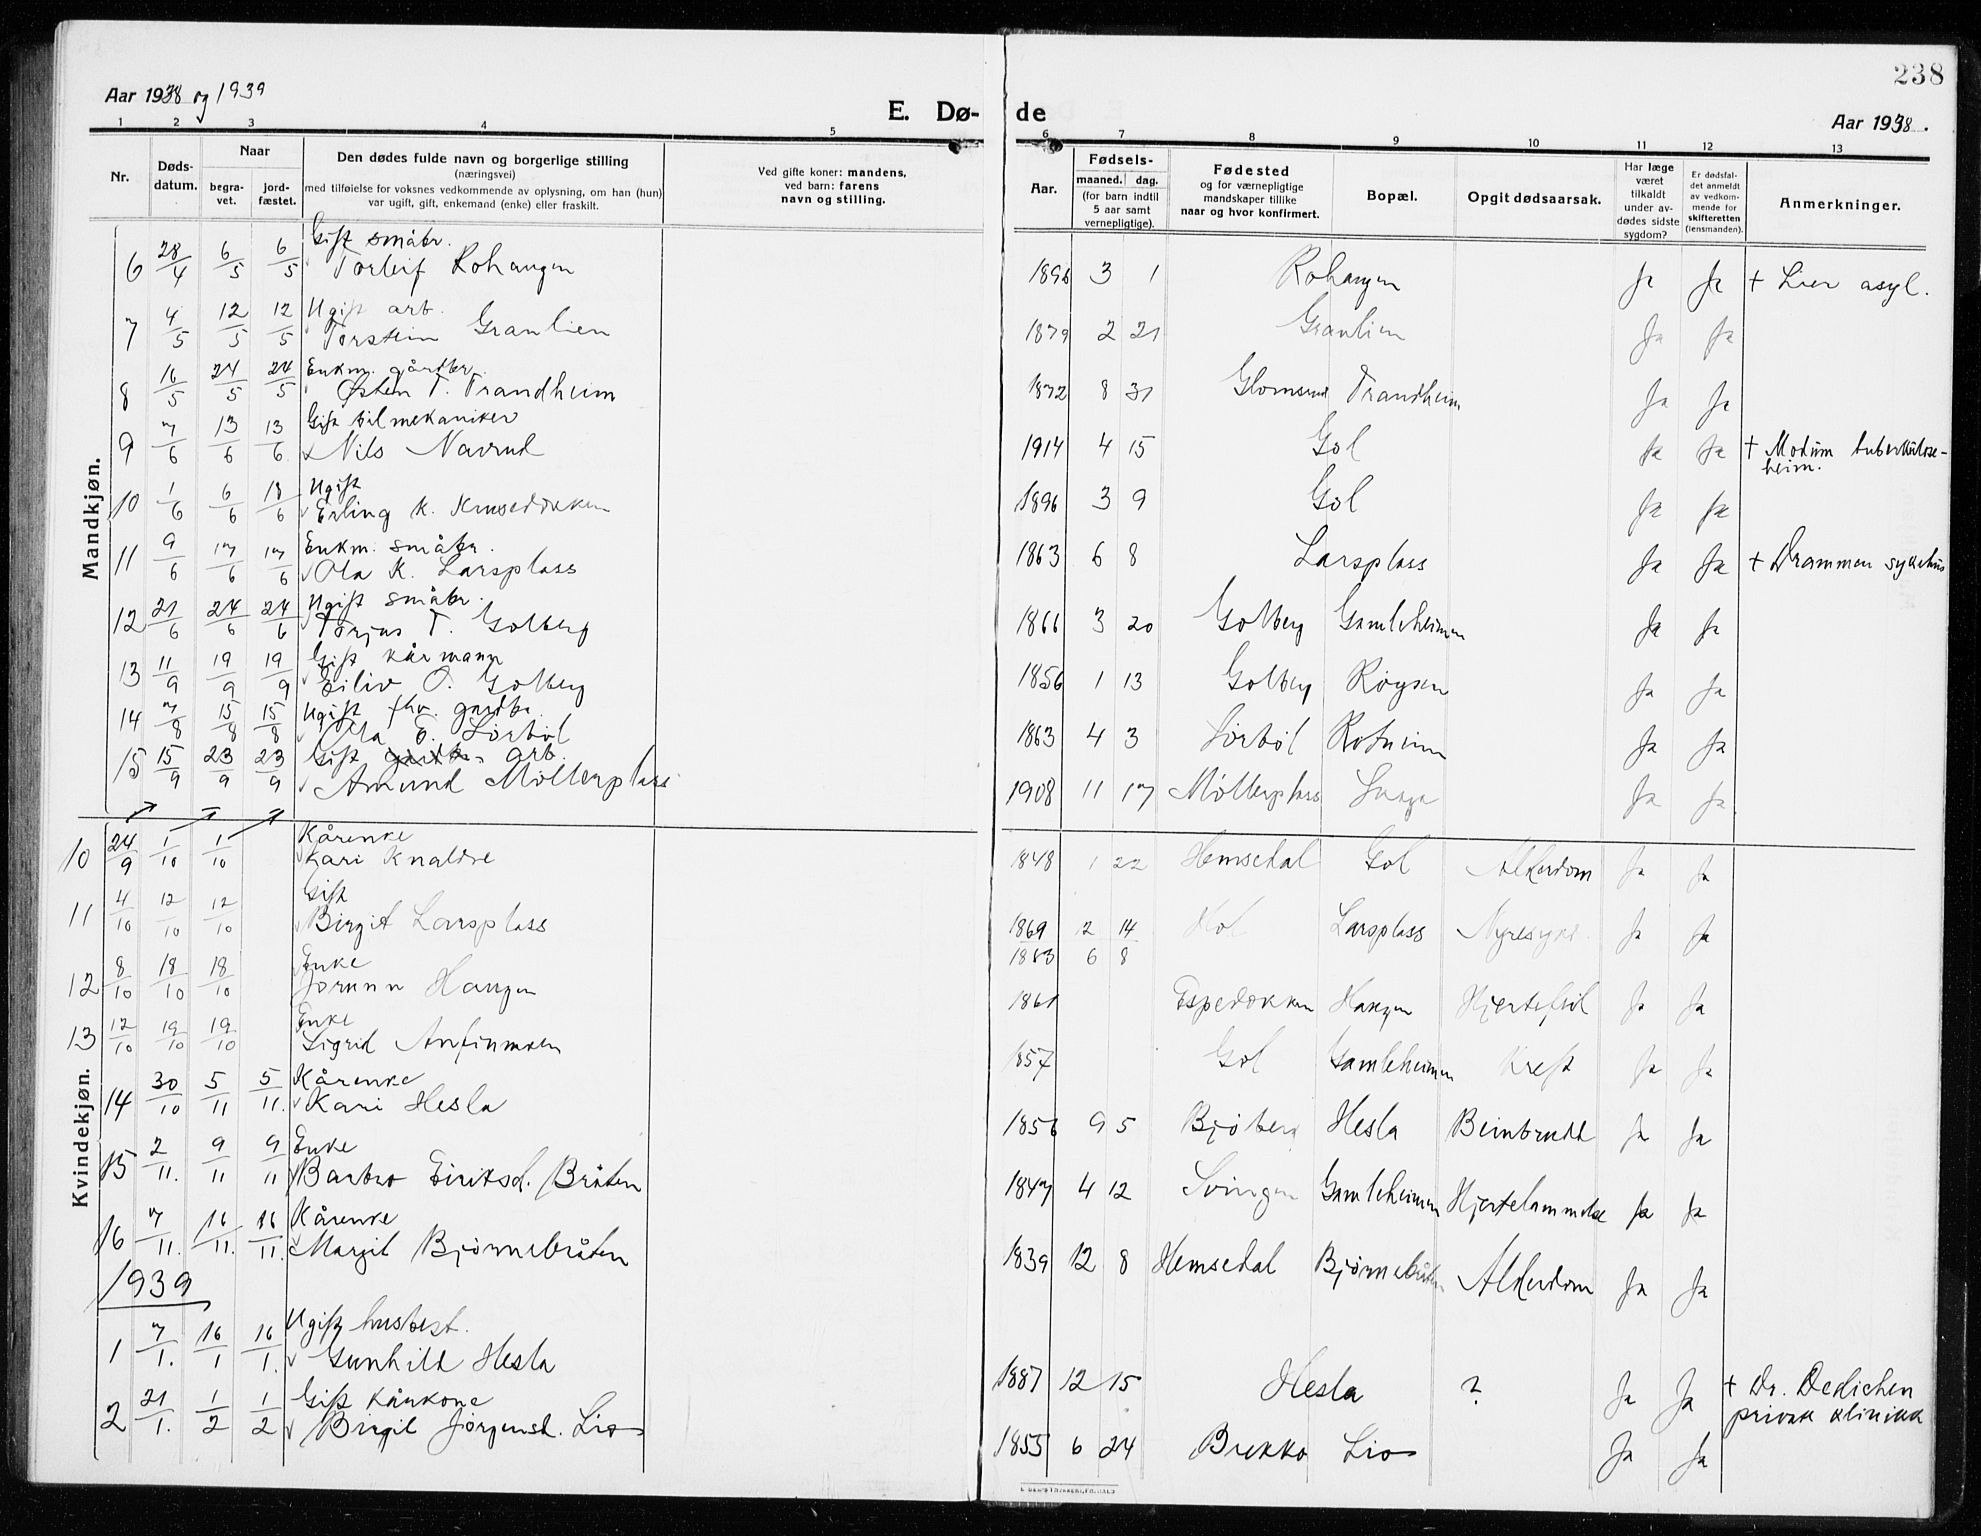 238
Aar 1938 og 1939
E. Dø- de
Aar 1938.
1 2 3 4 5 6 7 8 9 10 11 12 13
Nr.
Døds-datum.
Naar
begra-vet.
jord-fæstet.
Den dødes fulde navn og borgerlige stilling
(næringsvei)
med tilføielse for voksnes vedkommende av oplysning, om han (hun)
var ugift, gift, enkemand (enke) eller fraskilt.
Ved gifte koner: mandens,
ved barn: farens
navn og stilling.
Aar.
Fødsels-
maaned. dag.
(for barn indtil
5 aar samt
vernepligtige).
Fødested
og for værnepligtige
mandskaper tillike
naar og hvor konfirmert.
Bopæl.
Opgit dødsaarsak.
Har læge
været
tilkaldt
under av-
dødes sidste
sygdom?
Er dødsfal-
det anmeldt
av vedkom-
mende for
skifteretten
(lensmanden).
Anmerkninger.
Mandkjøn.
Gift småbr.
6 28/4 6/5 6/5 Torleif Rohaugen 1896 3 1 Rohaugen Ja Ja + Lier asyl.
Ugift arb.
7 4/5 12/5 12/5 Torstein Granlien 1879 2 21 Granlien Ja Ja
Enkm. gårdbr.
8 16/5 24/5 24/5 Østen T. Trandheim 1872 8 31 Glomsrud Trandheim Ja Ja
Gift bilmekaniker
9 7/6 13/6 13/6 Nils Navrud 1914 4 15 Gol Ja Ja + Modum tuberkulose-
heim.
Ugift
10 1/6 6/6 18/6 Erling K. 1896 3 9 Gol Ja Ja
Enkm. småbr.
11 9/6 17/6 17/6 Ola K. Larsplass 1863 6 8 Larsplass Ja Ja + Drammen sykehus
Ugift småbr.
12 21/6 24/6 24/6 Torjus T. Golberg 1866 3 20 Golberg Gamleheimen Ja Ja
Gift kårmann
13 11/9 19/9 19/9 Eiliv O. Golberg 1856 1 13 Golberg Røysen Ja Ja
Ugift fhv. gardbr.
14 7/8 15/8 15/8 Ola E. Sørbøl 1863 4 3 Sørbøl Rotneim Ja Ja
Gift gardbr. arb.
15 15/9 23/9 23/9 Amund Møllerplass 1908 11 17 Møllerplass Ja Ja
Kvindekjøn.
Kårenke
10 24/9 1/10 1/10 Kari Knaldre 1848 1 22 Hemsedal Gol Alderdom Ja Ja
Gift
11 4/10 12/10 12/10 Birgit Larsplass 1869 2 14 Hol Larsplass Nyresyke Ja Ja
1863 6 8
Enke
12 8/10 18/10 18/10 Jorunn Haugen 1861 Espedokken Haugen Hjertefeil Ja Ja
Enke
13 12/10 19/10 19/10 Sigrid Anfinmoen 1857 Gol Gamleheimen Kreft Ja Ja
Kårenke
14 30/10 5/11 5/11. Kari Hesla 1856 9 5 Bjøberg Hesla Beinbrudd Ja Ja
Enke
15 2/11. 9/11 9/11 Barbro Eiriksd. Bråten 1847 4 12 Svingen Gamleheimen Hjertelammelse Ja Ja
Kårenke
16 7/11. 16/11. 16/11. Margit Bjørnebråten 1839 12 8 Hemsedal Bjørnebråten Alderdom Ja Ja
1939
Ugift husbest.
1 7/1. 16/1 16/1. Gunhild Hesla 1887 12 15 Hesla ? Ja Ja + Dr. Dedichen
privat klinikk
Gift Kårkone
2 21/1. 1/2 1/2 Birgit Jørgensd. Lio 1855 6 24 Brekko Lio Ja Ja